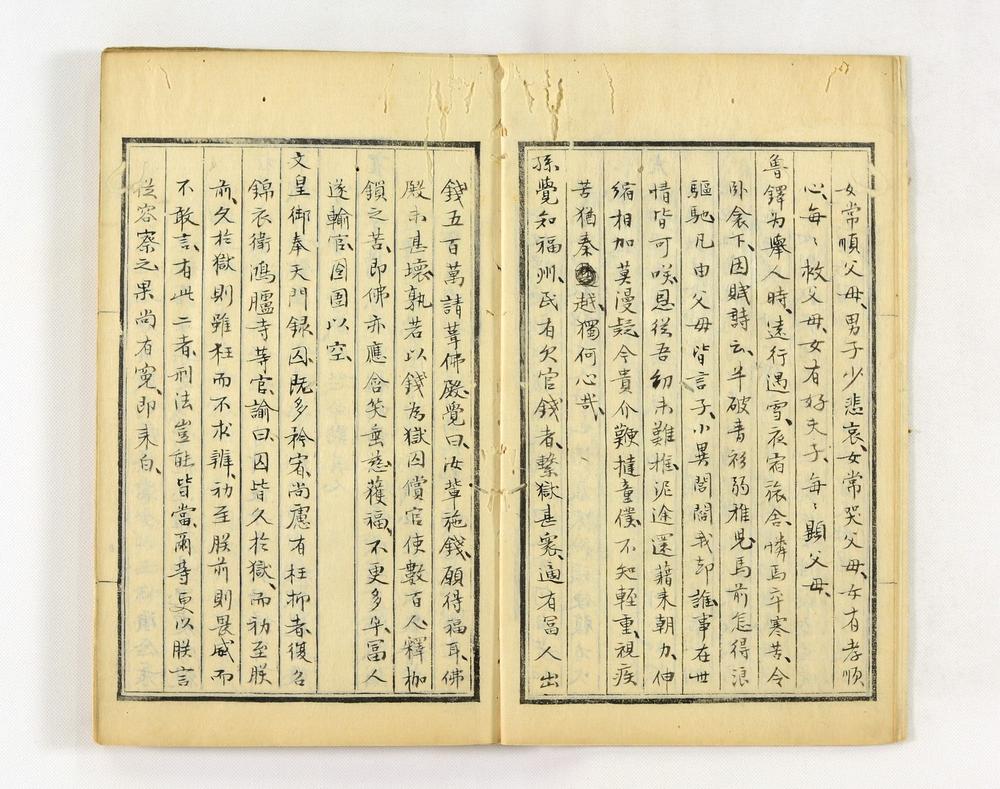 女常順父母、男子少悲哀、女常哭父母、女有孝順
心、每〻救父母、女有好夫子、每〻顯父母、
魯鐸為舉人時、遠行遇雪、夜宿旅舍、憐馬卒寒苦、令
卧衾下、因賦詩云、半破青衫弱稚児馬前怎得浪
驅馳凡由父母皆言子、小異閭閻我却誰事在世
情皆可咲、恩従吾幼未難推泥途還藉来朝力、伸
縮相加莫漫疑今貴介鞭撻童僕、不知輕重、視疾
苦猶秦越、獨何心哉、
孫覺知福州、民有欠官錢者、繫獄甚衆、適有冨人出
錢五百萬請葺佛殿、覺曰、汝輩施錢、願得福耳、佛
殿未甚壞、孰若以錢為獄囚償官使數百人、釋枷
鎖之苦、即佛亦應含笑垂慈、獲福、不更多乎、冨人
遂輸官、囹圄以空、
文皇御奉天門録囚、既多矜宥、尚慮有枉抑者、復召
錦衣衛鴻臚寺等官、諭曰、囚皆久於獄、而初至朕
前、久於獄則雖枉而不求辨、初至朕前則畏威而
不敢言、有此二者、刑法豈能皆當、爾等更以朕言
従容察之果尚有寃、即来白、